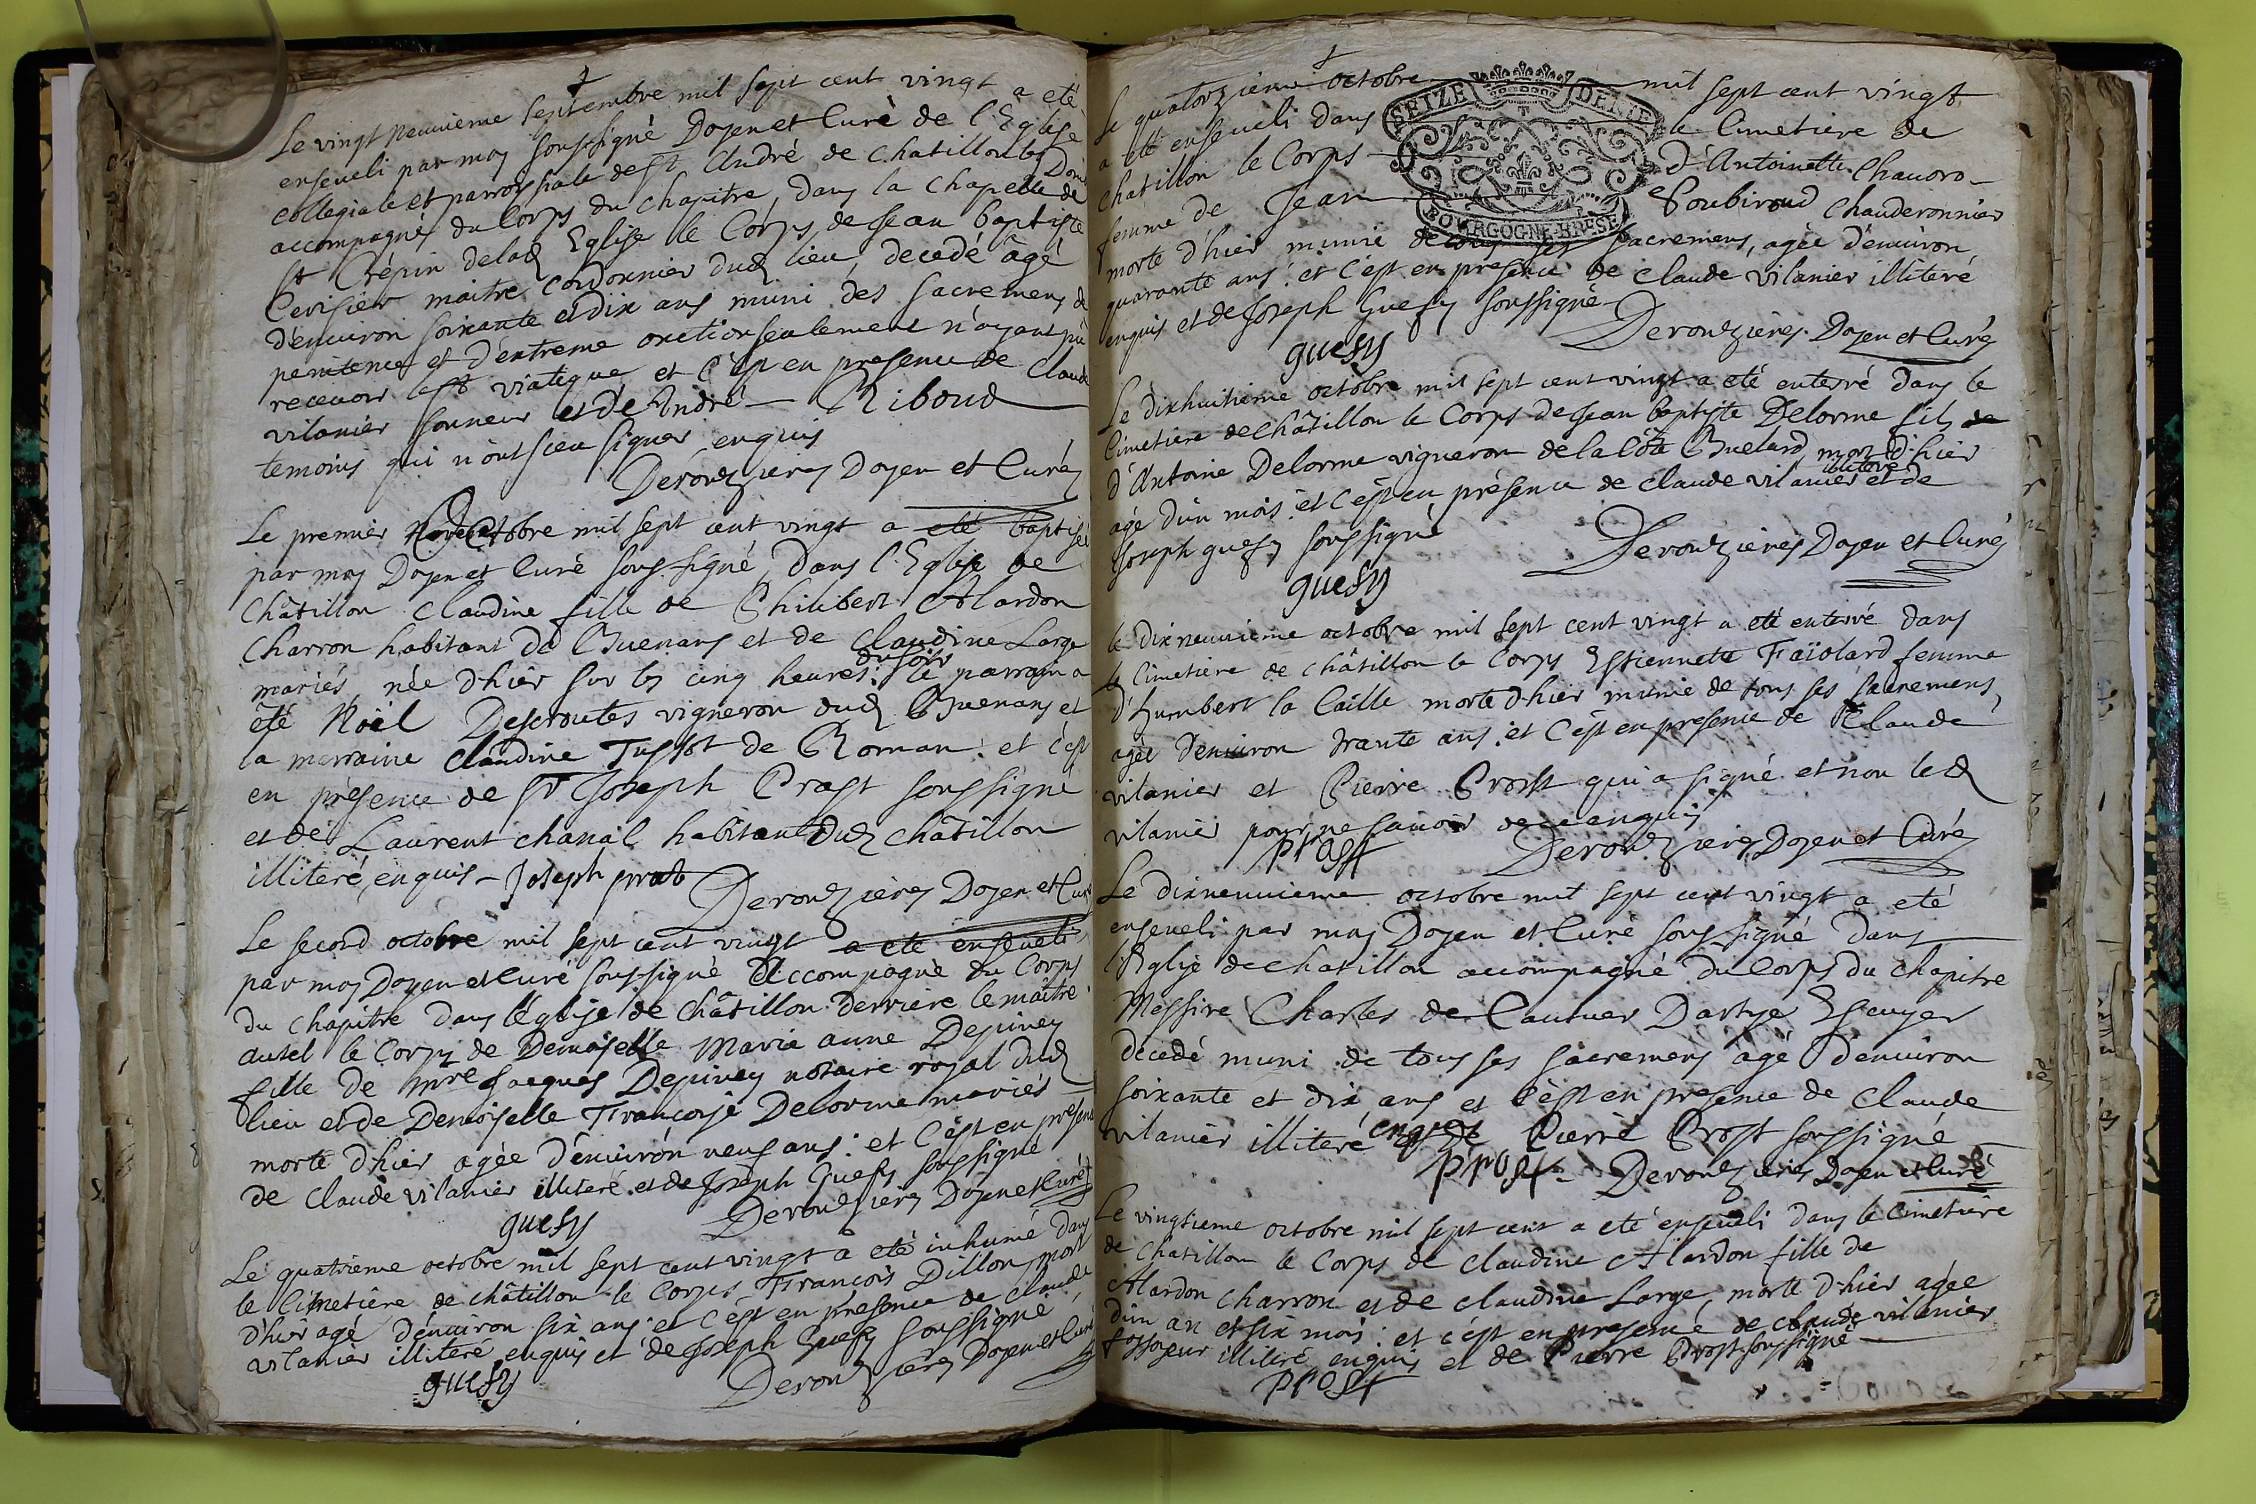 Le vingt neuvieme Septembre mil sept cent vingt a eté
enseveli par moy soussigné Doyen et Curé de l'Eglise
collegiale et parroissiale de St André de Chatillon les Dom
accompagné du Corps du Chapitre, dans la Chapelle de
St Crépin de lad Eglise le Corps de Jean baptiste
Cerisier maitre Cordonnier dud lieu, decedé âgé
d'environ soixante et dix ans muni des sacremens de
penitence et d'extreme onction seulement n'ayant pû
recevoir le St viatique et c'est en presence de Claude
vilanier sonneur et de André Riboud
temoins qui n'ont sceu signer enquis
Derouzieres Doyen et Curé
Le premier octobre mil sept cent vingt a eté baptisée
par moy Doyen et Curé soussigné, dans l'Eglise de
Châtillon Claudine fille de Philibert Alardon
Charron habitant de Buenans et de Claudine Large
mariés, née d'hier sur les cinq heures du soir le parrain a
été Noël Descroutes vigneron dud Buenans et
la marraine Claudine Tussot de Roman. et c'est
en présence de Sr Joseph Prost soussigné
et de Laurent chanal habitant dud Châtillon
illiteré, enquis – Joseph prost Derouzieres Doyen et Curé
Le second octobre mil sept cent vingt a eté enseveli
par moy Doyen et Curé soussigné Accompagné du Corps
du chapitre dans l'église de Châtillon derriere le maitre
autel le Corps de Demoiselle Marie anne Depiney
fille de Mre Jacques Depiney notaire royal dud
lieu et de Demoiselle Françoise Delorme mariés
morte d'hier agée d'environ neuf ans : et c'est en presence
de Claude vilanier illiteré et de Joseph Guefy soussigné
guefy Derouzieres Doyen et Curé
Le quatrieme octobre mil sept cent vingt a eté inhumé dans
le Cimetière de châtillon le Corps François Dillon mort
d'hier agé d'environ six ans : et c'est en présence de Claude
vilanier illiteré enquis et de Joseph Guefy soussigné
guefy Derouzieres Doyen et Curé
Le quatorzieme octobre mil sept cent vingt
SEIZE DENIE
BOURGOGNE-BRESSE
a eté enseveli dans le Cimetiere de
chatillon le Corps d'Antoinette Chavoro
femme de Jean Poubiroud Chauderonnier
morte d'hier munie de tous ses sacremens, agée d'environ
quarante ans : et c'est en presence de Claude vilanier illiteré
enquis et de Joseph Guefy soussigné
guefy Derouzieres Doyen et Curé
Le dixhuitieme octobre mil sept cent vingt a eté enterré dans le
Cimetiere de Châtillon le Corps de Jean baptiste Delorme fils
d'Antoine Delorme vigneron de la Côte Buelard, mort d'hier
agé d'un mois : et c'est en présence de Claude vilanier illiteré et de
Joseph guefy soussigné
guefy Derouzieres Doyen et Curé
le dixneuvieme octobre mil sept cent vingt a eté enterré dans
le Cimetiere de Châtillon le Corps Estiennette Faïolard femme
d'humbert la Caille morte d'hier munie de tous ses sacremens,
agée d'environ trante ans. et c'est en presence de Claude
vilanier et Pierre Prost qui a signé et non led
vilanier pour ne savoir de ce enquis
prost Derouzieres Doyen et Curé
Le dixneuvieme octobre mil sept cent vingt a eté
enseveli par moy Doyen et Curé soussigné dans
l'Eglise de Chatillon accompagné du Corps du chapitre
Messire Charles de Escuyer
decedé muni de tous ses sacremens âgé d'environ
soixante et dix ans et c'est en presence de Claude
vilanier illiteré enquis et de Pierre Prost soussigné
prost Derouzieres Doyen et Curé
Le vingtieme octobre mil sept cent a eté enseveli dans le Cimetiere
de Chatillon le Corps de Claudine Alardon fille de
Alardon Charron et de Claudine Large, morte d'hier agée
d'un an et six mois : et c'est en presence de Claude vilanier
fossoyeur illiteré enquis et de Pierre Prost soussigné
prost